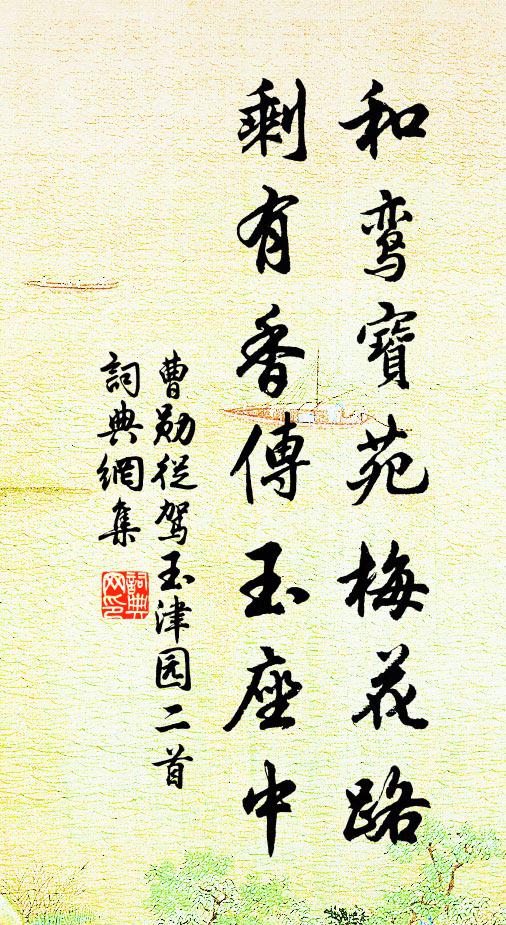 和鸾寶苑梅花路
剩有香傳玉座中
曹勛從駕玉津园二首
詞典網集
詞典网印